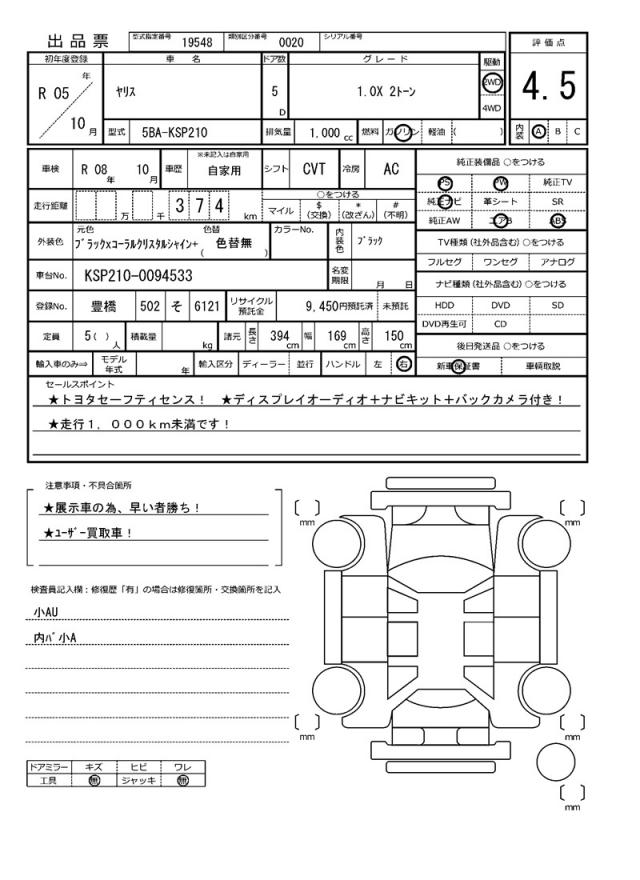 出品票 型式指定番号 19548 類別区分番号 0020 シリアル番号
初年度登録 車名 ドア数 グレード 駆動 評価点
R 05 年 10 月 ヤリス 5 D 1.0X 2トーン 2WD 4WD 4.5
型式 5BA-KSP210 排気量 1.000 cc 燃料 ガソリン 軽油 ( ) 内装 A B C
車検 R 08 年 10 月 車歴 ※未記入は自家用 自家用 シフト CVT 冷房 AC
走行距離 万 千 3 7 4 km マイル ○をつける $ (交換) * (改ざん) # (不明)
外装色 元色 ブラックxコーラルクリスタルシャイン+ 色替 ( 色替無 ) カラーNo. 内装色 ブラック
車台No. KSP210-0094533 名変期限 月 日
登録No. 豊橋 502 そ 6121 リサイクル預託金 9,450円預託済 未預託
定員 5( ) 人 積載量 kg 諸元 長さ 394 cm 幅 169 cm 高さ 150 cm
輸入車のみ⇒ モデル年式 年 輸入区分 ディーラー 並行 ハンドル 左 右
純正装備品 ○をつける
PS PW 純正TV
純正ナビ 革シート SR
純正AW エアB ABS
TV種類 (社外品含む) ○をつける
フルセグ ワンセグ アナログ
ナビ種類 (社外品含む) ○をつける
HDD DVD SD
DVD再生可 CD
後日発送品 ○をつける
新車保証書 車輌取説
セールスポイント
★トヨタセーフティセンス! ★ディスプレイオーディオ+ナビキット+バックカメラ付き!
★走行1,000km未満です!
注意事項・不具合箇所
★展示車の為、早い者勝ち!
★ユーザー買取車!
検査員記入欄:修復歴「有」の場合は修復箇所・交換箇所を記入
小AU
内バ小A
ドアミラー キズ ヒビ ワレ
工具 無 ジャッキ 無
[ ] mm
[ ] mm
[ ] mm
[ ] mm
[ ] mm